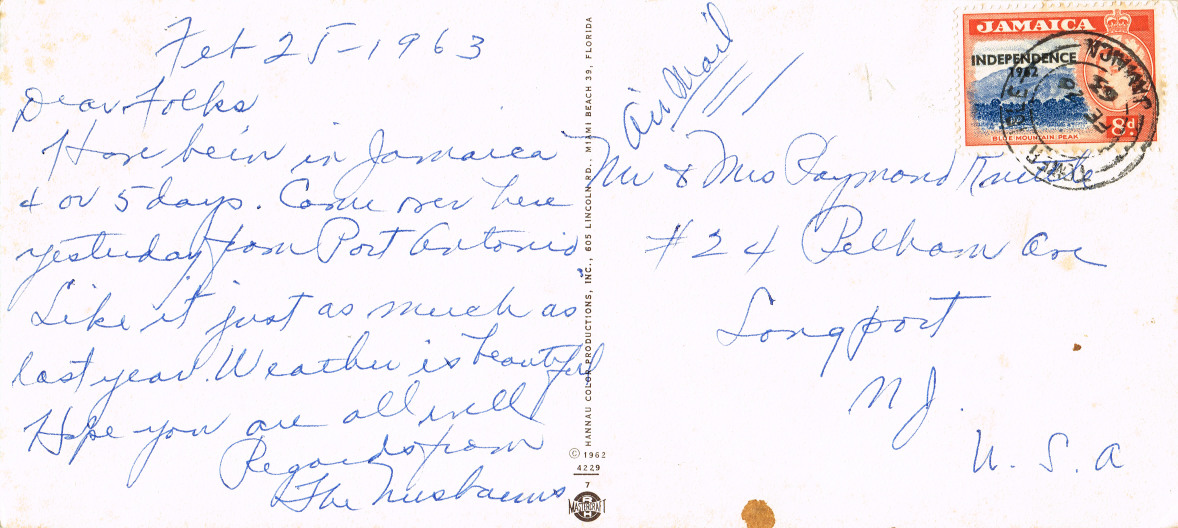 Feb 25-1963
Dear Folks
Have been in Jamaica
4 or 5 days. Came over here
yesterday from Port Antonio
Like it just as much as
last year. Weather is beautiful
Hope you are all well
Regards from
The Nusbaums
© HANNAU COLOR PRODUCTIONS, INC., 605 LINCOLN RD., MIAMI BEACH 39, FLORIDA
© 1962
4229
7
Air Mail
Mr & Mrs Raymond
#24 Pelham Ave
Longport
NJ.
U. S. A
JAMAICA
INDEPENDENCE
1962
BLUE MOUNTAIN PEAK
8d
JAMAICA